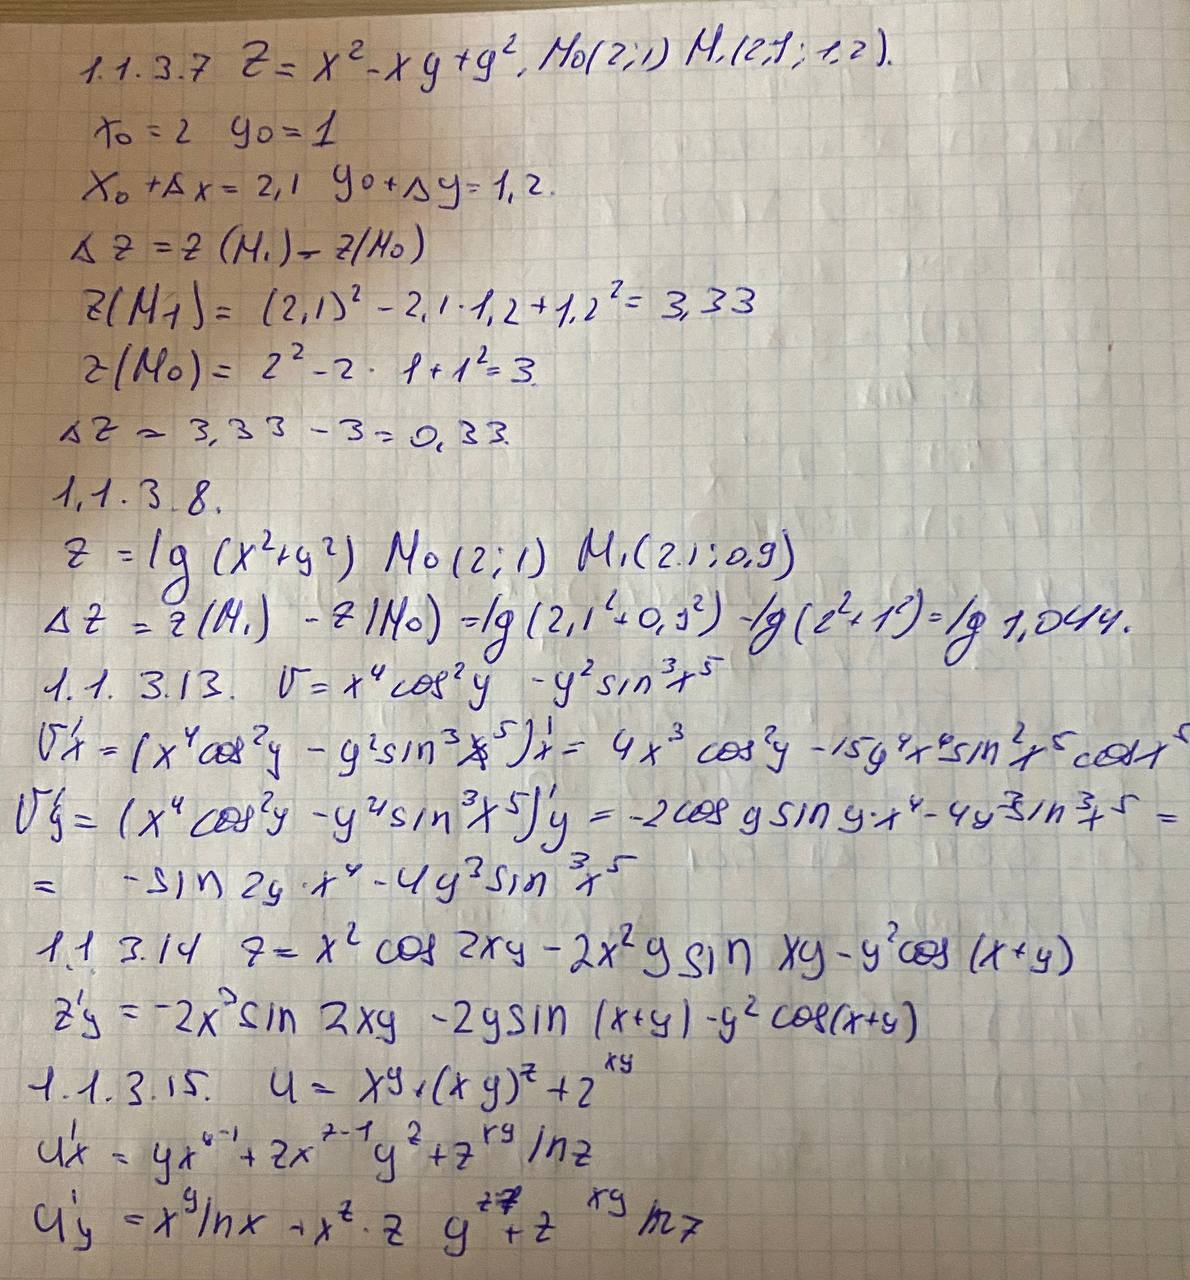 1.1.3.7 Z = x² - xy + y², M₀(2;1) M₁(2,1; 1,2).
x₀ = 2 y₀ = 1
x₀ + Δx = 2,1 y₀ + Δy = 1,2.
Δz = z(M₁) - z(M₀)
z(M₁) = (2,1)² - 2,1·1,2 + 1,2² = 3,33
z(M₀) = 2² - 2·1 + 1² = 3.
Δz = 3,33 - 3 = 0,33.
1.1.3.8.
z = lg(x²+y²) M₀(2;1) M₁(2.1;0,9)
Δz = z(M₁) - z(M₀) = lg(2,1²+0,9²) - lg(2²+1²) = lg 1,044.
1.1.3.13. V = x⁴cos²y - y²sin³x⁵
V'x = (x⁴cos²y - y²sin³x⁵)'x = 4x³ cos²y - 15y⁴x⁴sin²x⁵cosx⁵
V'y = (x⁴cos²y - y⁴sin³x⁵)'y = -2cos y sin y·x⁴ - 4y³sin³x⁵ =
= -sin 2y·x⁴ - 4y³sin³x⁵
1.1.3.14 z = x² cos 2xy - 2x²y sin xy - y²cos(x+y)
z'y = -2x³sin 2xy - 2y sin (x+y) - y² cos(x+y)
1.1.3.15. U = xʸ + (xy)ᶻ + zˣʸ
U'x = yxʸ⁻¹ + zxᶻ⁻¹yᶻ + zˣʸ lnz
U'y = xʸlnx + xᶻ·z yᶻ + zˣʸ lnz